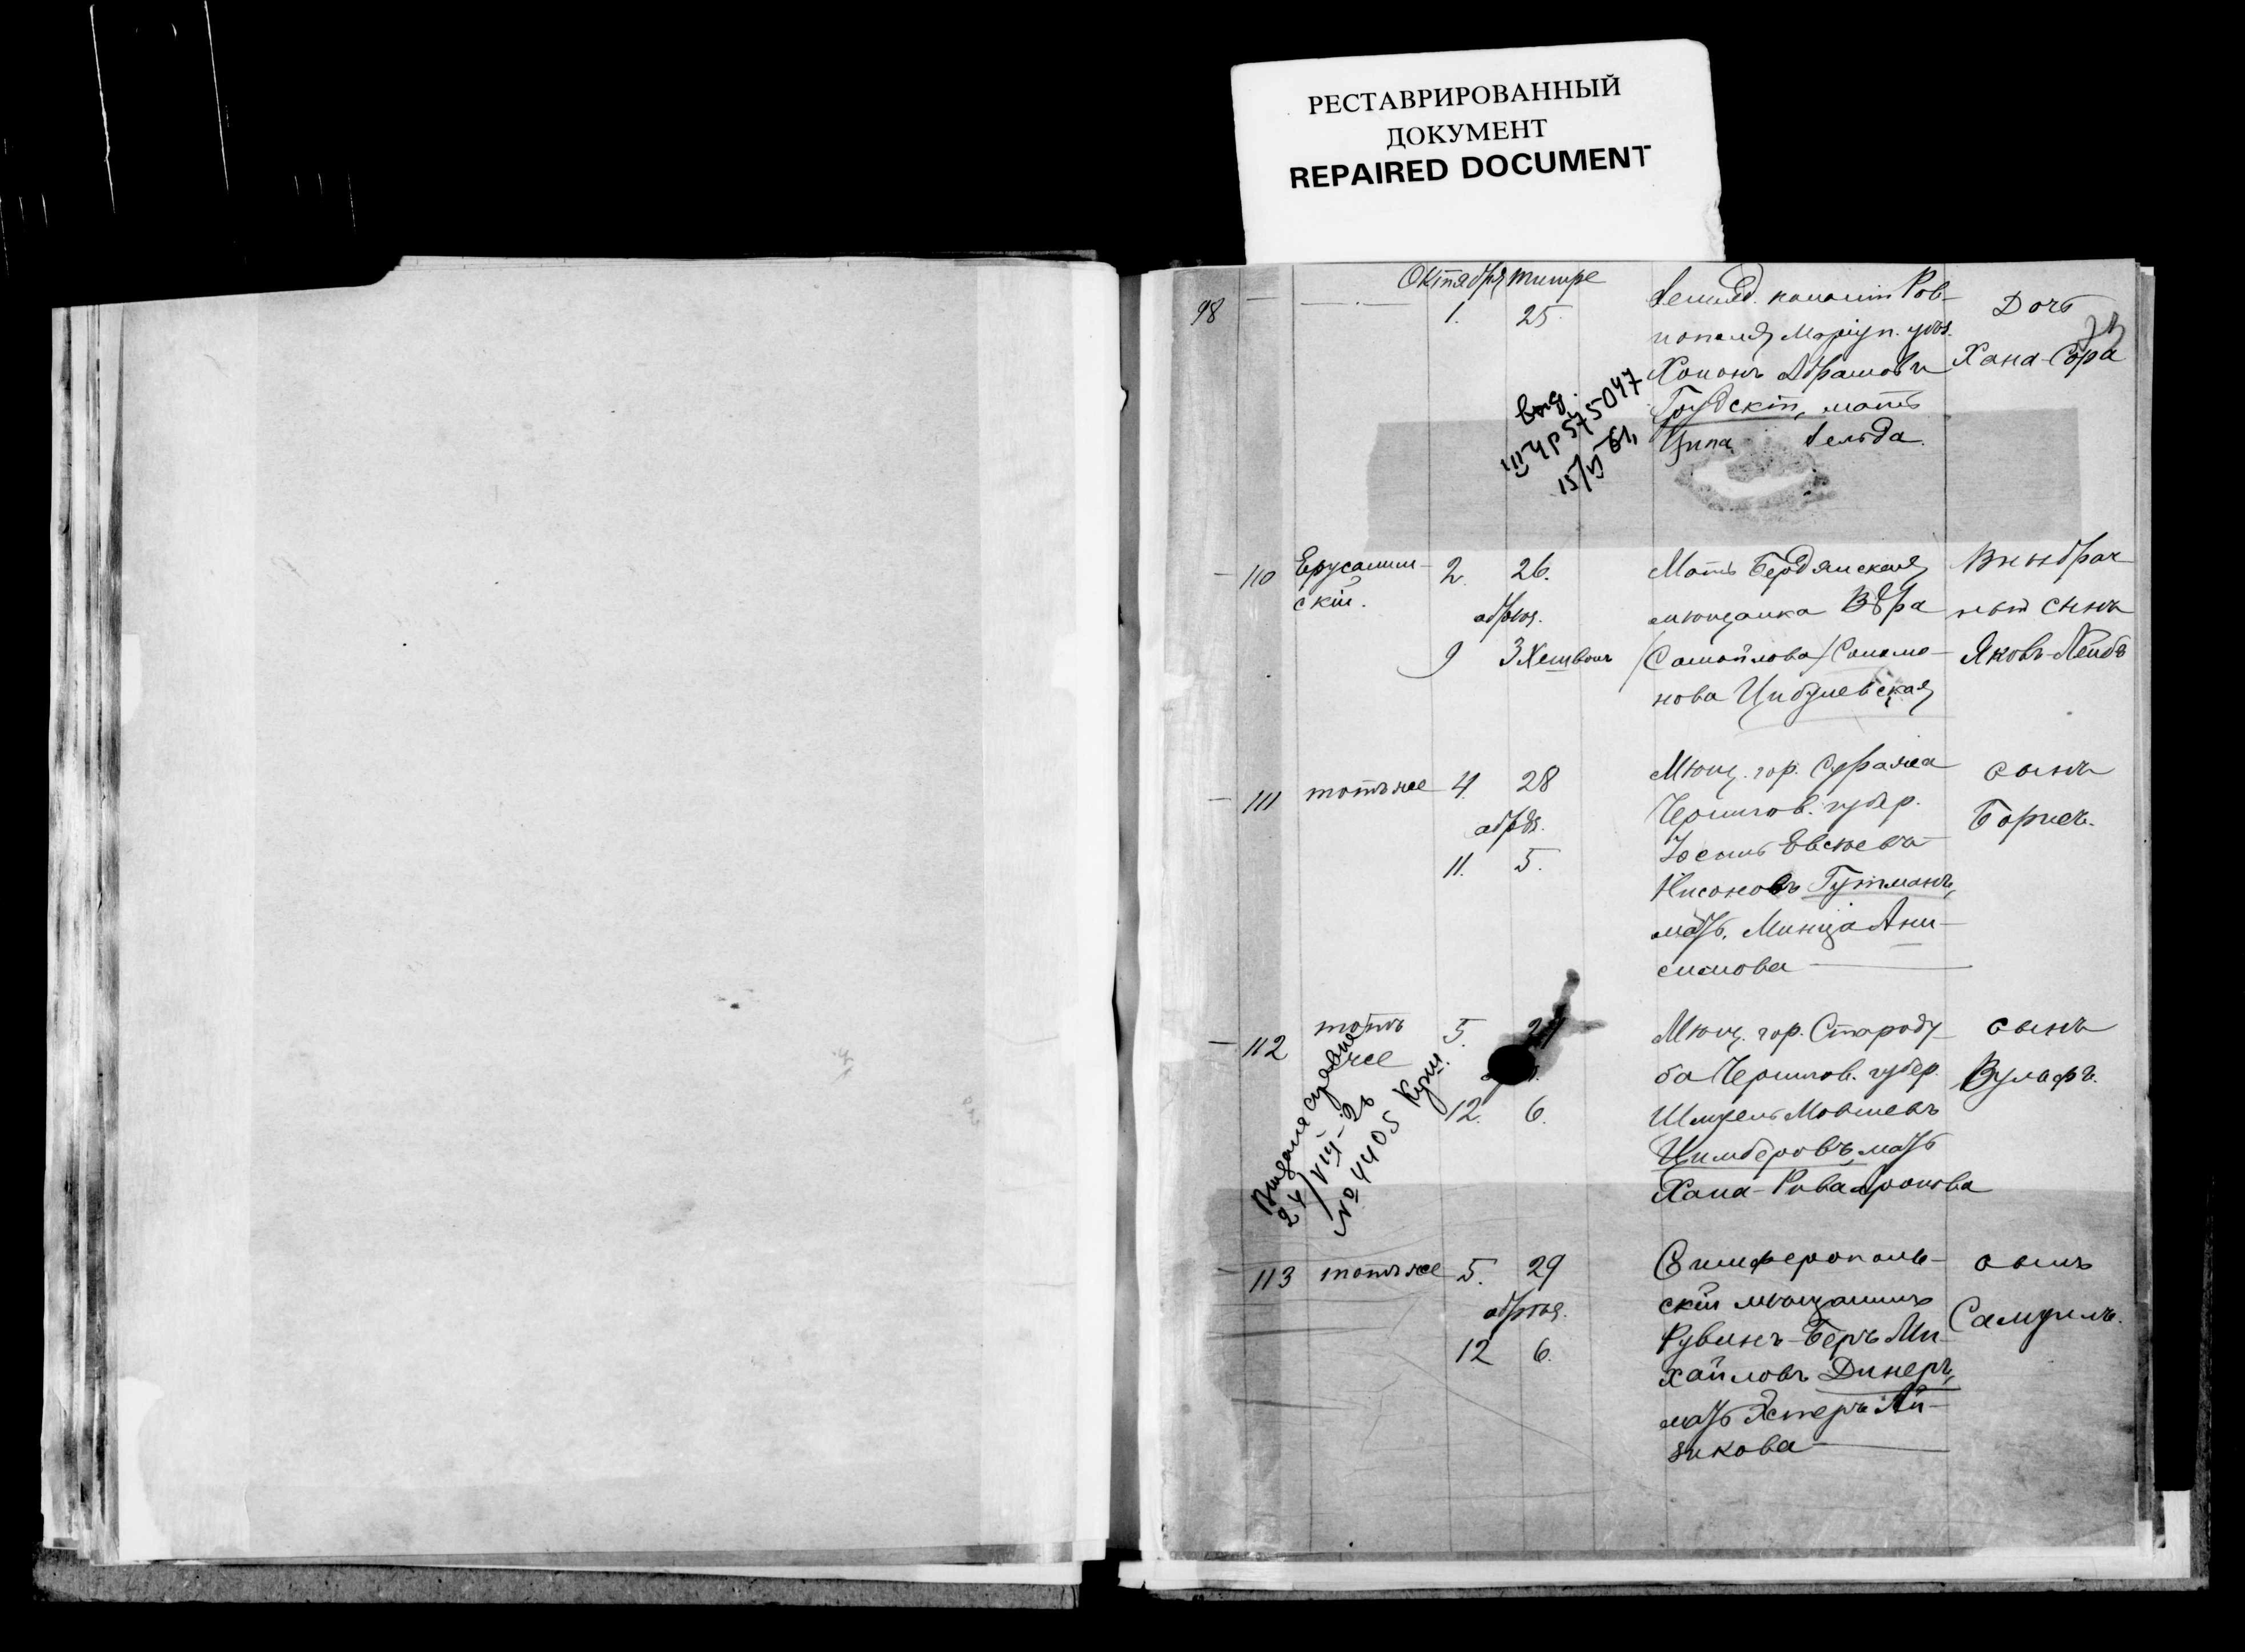 РЕСТАВРИРОВАННЫЙ
ДОКУМЕНТ
REPAIRED DOCUMENT
Октября тишре
98 1. 25. колоніи Ров-
нополя Маріуп. уѣз.
Абрамовъ
Грудскій, мать
Ципа Зельда.
Дочь
Хана-Сора
выд.
III ЧР 575047
15/VI-61
110 Ерусалим-
скій.
2. 26.
обрѣз.
9 3 Хешвонъ
Мать Бердянская
мѣщанка Вѣра
(Самойлова) Соломо-
нова Цибулевская
Внѣбрач-
ный сынъ
Яковъ-Лейбъ
111 тотъ же 4. 28
обрѣз.
11. 5.
Мѣщ. гор. Суража
Чернигов. губер.
Іосель Евсѣевъ
Нисоновъ Гутманъ,
мать. Минца Ани-
симова
сынъ
Борисъ.
112 тотъ
же
5. 29
12. 6.
Мѣщ. гор. Староду-
ба Чернигов. губер.
Шмуель Мовшевъ
Цимберовъ, мать
Хана-Рива Аронова
сынъ
Вульфъ.
Выдана справка
24/VIII-26
№ 4405
113 тотъ же 5. 29
обрѣз.
12 6.
Симферополь-
скій мѣщанинъ
Рувинъ-Беръ Ми-
хайловъ Динеръ,
мать Эстеръ Ай-
зикова
сынъ
Самуилъ.